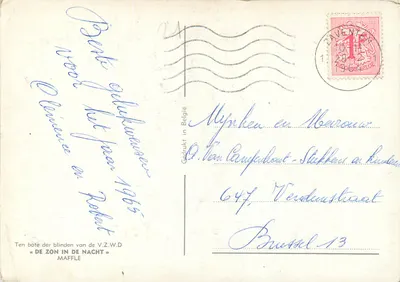 Beste gelukwensen
voor het jaar 1965
Clemence en Robert
Ten bate der blinden van de V.Z.W.D
« DE ZON IN DE NACHT »
MAFFLE
Gedrukt in België
ZAVENTEM
1F
Mijnheer en Mevrouw
A. Van Campenhout - Stukkens en kinderen
647, Verdunstraat
Brussel 13